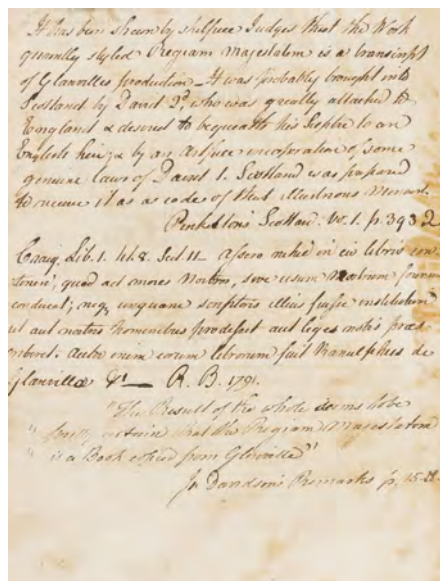 It has been shewn by skilfull Judges that the Work
generally styled Regiam Majestatem is a transcript
of Glanvilles production _ It was probably brought into
Scotland by David 2d. who was greatly attached to
England & desired to bequeath his Scepter to an
English heir; & by an Artfull incorporation of some
genuine laws of David 1. Scotland was prepared
to receive it as a code of that illustrious Monarch.
Pinkerton's Scotland. Vo. 1. p. 393
Craig. Lib. 1. tit. 8. Sect. 11 _ Assero nihil in eis libris con
tineri, quod ad mores nostros, sive usum nostrum forensem
conducat; neq. unquam scriptoris illius fuisse institutum
ut aut nostris hominibus prodesset aut leges nostris præs
criberet. Autor enim eorum librorum fuit Ranulphus de
Glanvilla &c _ R. B. 1791.
"The Result of the whole seems to be
" pretty certain that the Regiam Majestatem
" is a Book copied from Glanville"
Davidson's Remarks p. 15